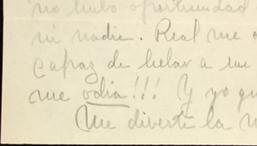 no hubo oportunidad
ni nadie. Real me
capaz de helar a un
me odia!!! Y yo qu
Me divertí la